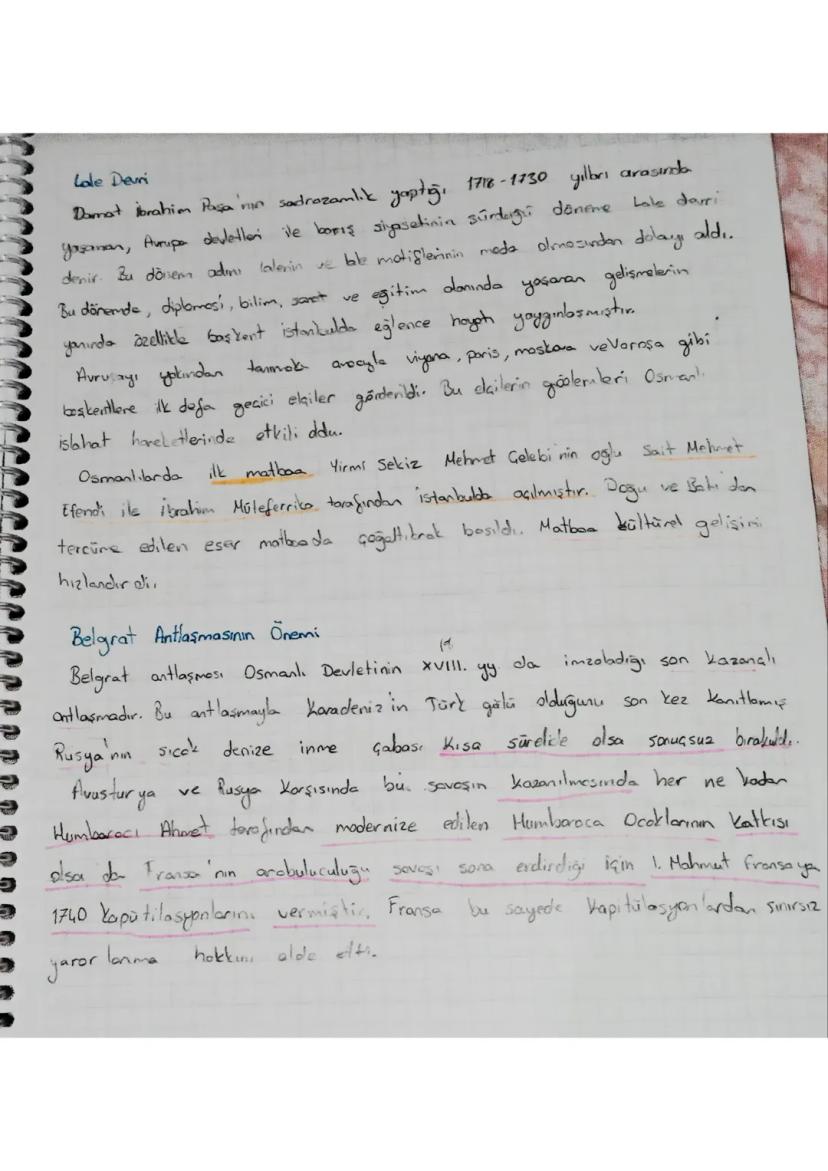 Lale Devri
Damat İbrahim Paşa'nın sadrazamlık yaptığı 1718-1730 yılları arasında
yaşanan, Avrupa devletleri ile barış siyasetinin sürdüğü döneme Lale devri
denir. Bu dönem adını lalenin ve lale motiflerinin moda olmasından dolayı aldı.
Bu dönemde, diplomasi, bilim, sanat ve eğitim alanında yaşanan gelişmelerin
yanında özellikle başkent istanbulda eğlence hayatı yaygınlaşmıştır.
Avrupayı yakından tanımak amacıyla viyana, paris, moskova ve Varoşa gibi
başkentlere ilk defa geçici elçiler gönderildi. Bu elçilerin gözlemleri Osmanlı
ıslahat hareketlerinde etkili oldu.
Osmanlılarda ilk matbaa Yirmi Sekiz Mehmet Çelebi'nin oğlu Sait Mehmet
Efendi ile İbrahim Müteferrika tarafından istanbulda açılmıştır. Doğu ve Batı'dan
tercüme edilen eser matbaada çoğaltılarak basıldı. Matbaa kültürel gelişimi
hızlandırdı.
Belgrat Antlaşmasının Önemi
Belgrat antlaşması Osmanlı Devletinin XVIII. yy da imzaladığı son kazançlı
antlaşmadır. Bu antlaşmayla Karadeniz'in Türk gölü olduğunu son kez kanıtlamış
Rusya'nın sıcak denize inme çabası kısa sürelide olsa sonuçsuz bırakıldı.
Avusturya ve Rusya karşısında bu savaşın kazanılmasında her ne kadar
Humbaracı Ahmet tarafından modernize edilen Humbaraca Ocaklarının katkısı
olsa da Fransa'nın arabuluculuğu savaşı sona erdirdiği için I. Mahmut Fransaya
1740 kapütilasyonlarını vermiştir. Fransa bu sayede kapitülasyonlardan sınırsız
yararlanma hakkını elde etti.